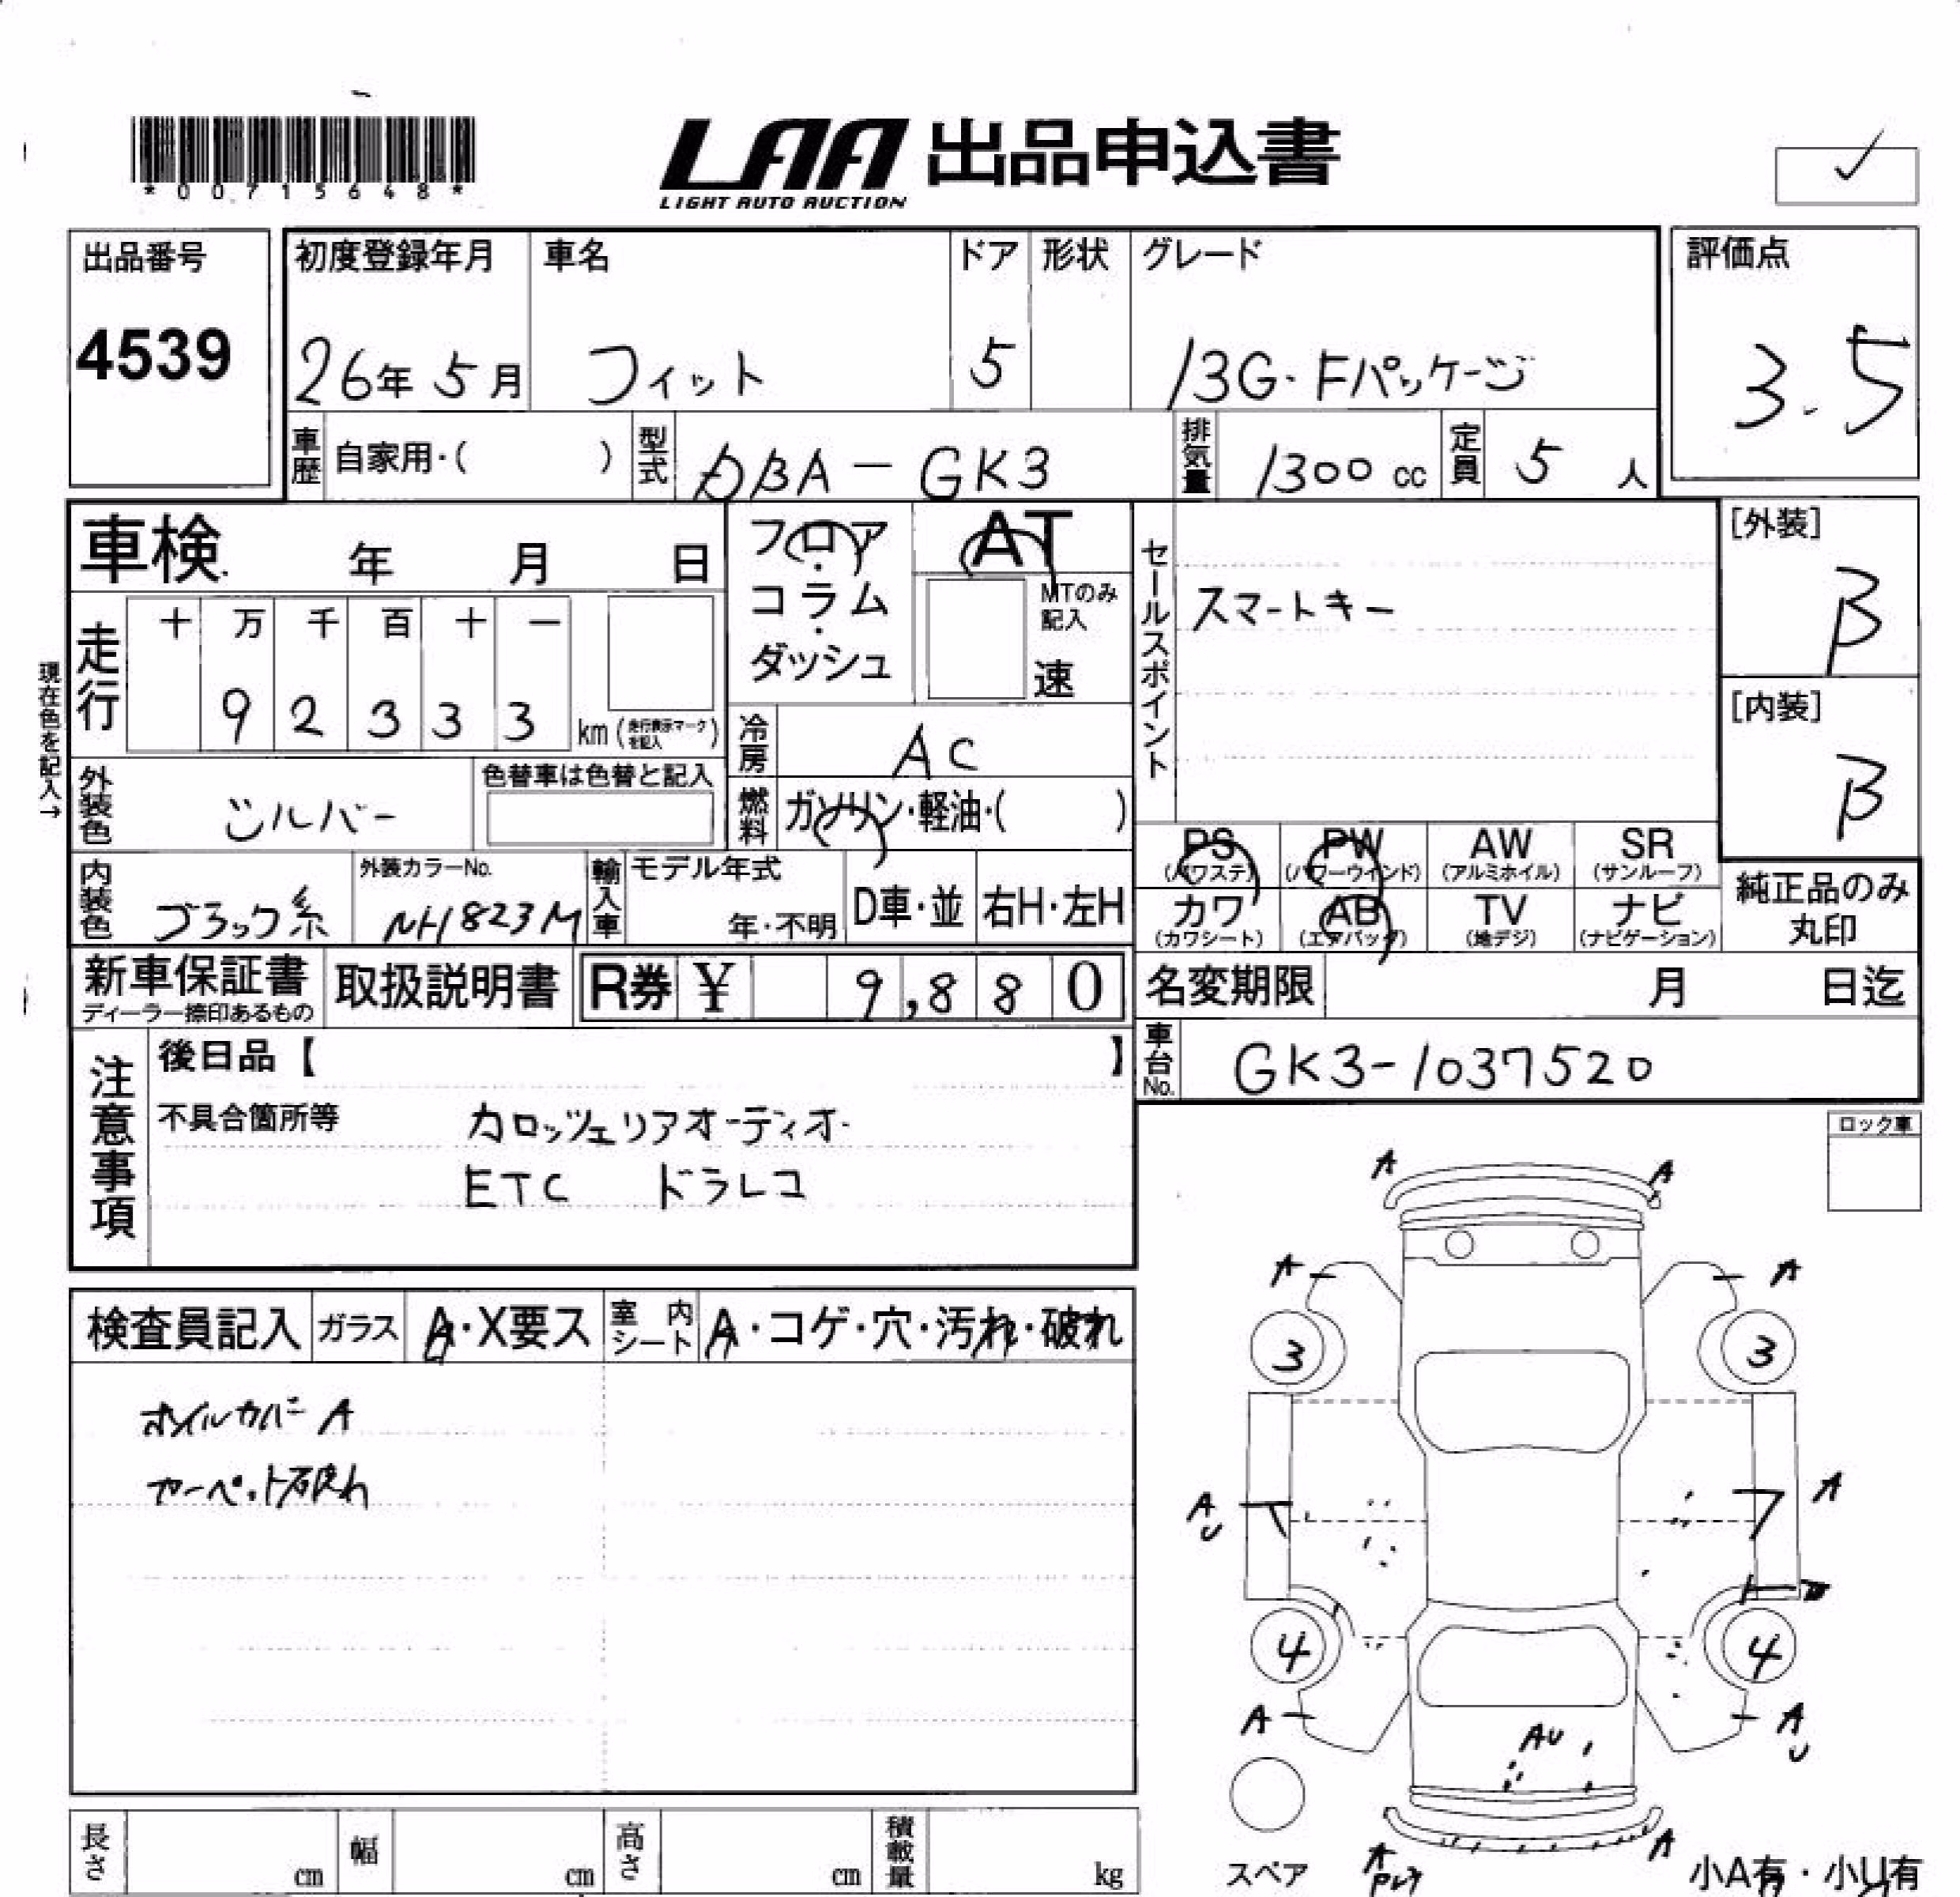 *00715648*
LAA 出品申込書
LIGHT AUTO AUCTION
出品番号
4539
初度登録年月 車名 ドア 形状 グレード
26年 5月 フィット 5 13G・Fパッケージ
評価点
3.5
車歴 自家用・( ) 型式 DBA-GK3 排気量 1300 cc 定員 5 人
車検 年 月 日
フロア・コラム・ダッシュ
AT
MTのみ記入
速
セールスポイント
スマートキー
[外装]
B
[内装]
B
現在色を記入→
走行 十 万 千 百 十 一
9 2 3 3 3 km (走行表示マークを記入)
冷房 AC
外装色 シルバー 色替車は色替と記入
燃料 ガソリン・軽油・( )
PS (パワステ) PW (パワーウインド) AW (アルミホイル) SR (サンルーフ)
カワ (カワシート) AB (エアバッグ) TV (地デジ) ナビ (ナビゲーション)
純正品のみ丸印
内装色 ブラック系 外装カラーNo. NH823M 輸入車 モデル年式 年・不明 D車・並 右H・左H
新車保証書 ディーラー捺印あるもの 取扱説明書 R券 ¥ 9,880
名変期限 月 日迄
車台No. GK3-1037520
注意事項
後日品【 】
不具合箇所等 カロッツェリアオーディオ
ETC ドラレコ
ロック車
検査員記入 ガラス A・X要ス 室内シート A・コゲ・穴・汚れ・破れ
ホイルカバー A
カーペット破れ
A A
A A
3 3
A U A
4 4
A A U
AU
A A
スペア
小A有・小U有
長さ cm 幅 cm 高さ cm 積載量 kg